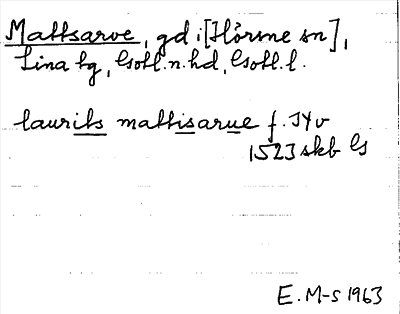 Mattsarve, gd i [Hörsne sn],
Lina tg, Gotl. n. hd, Gotl. l.
laurits mattisarue f. 34v
1523 skb G
E. M-s 1963